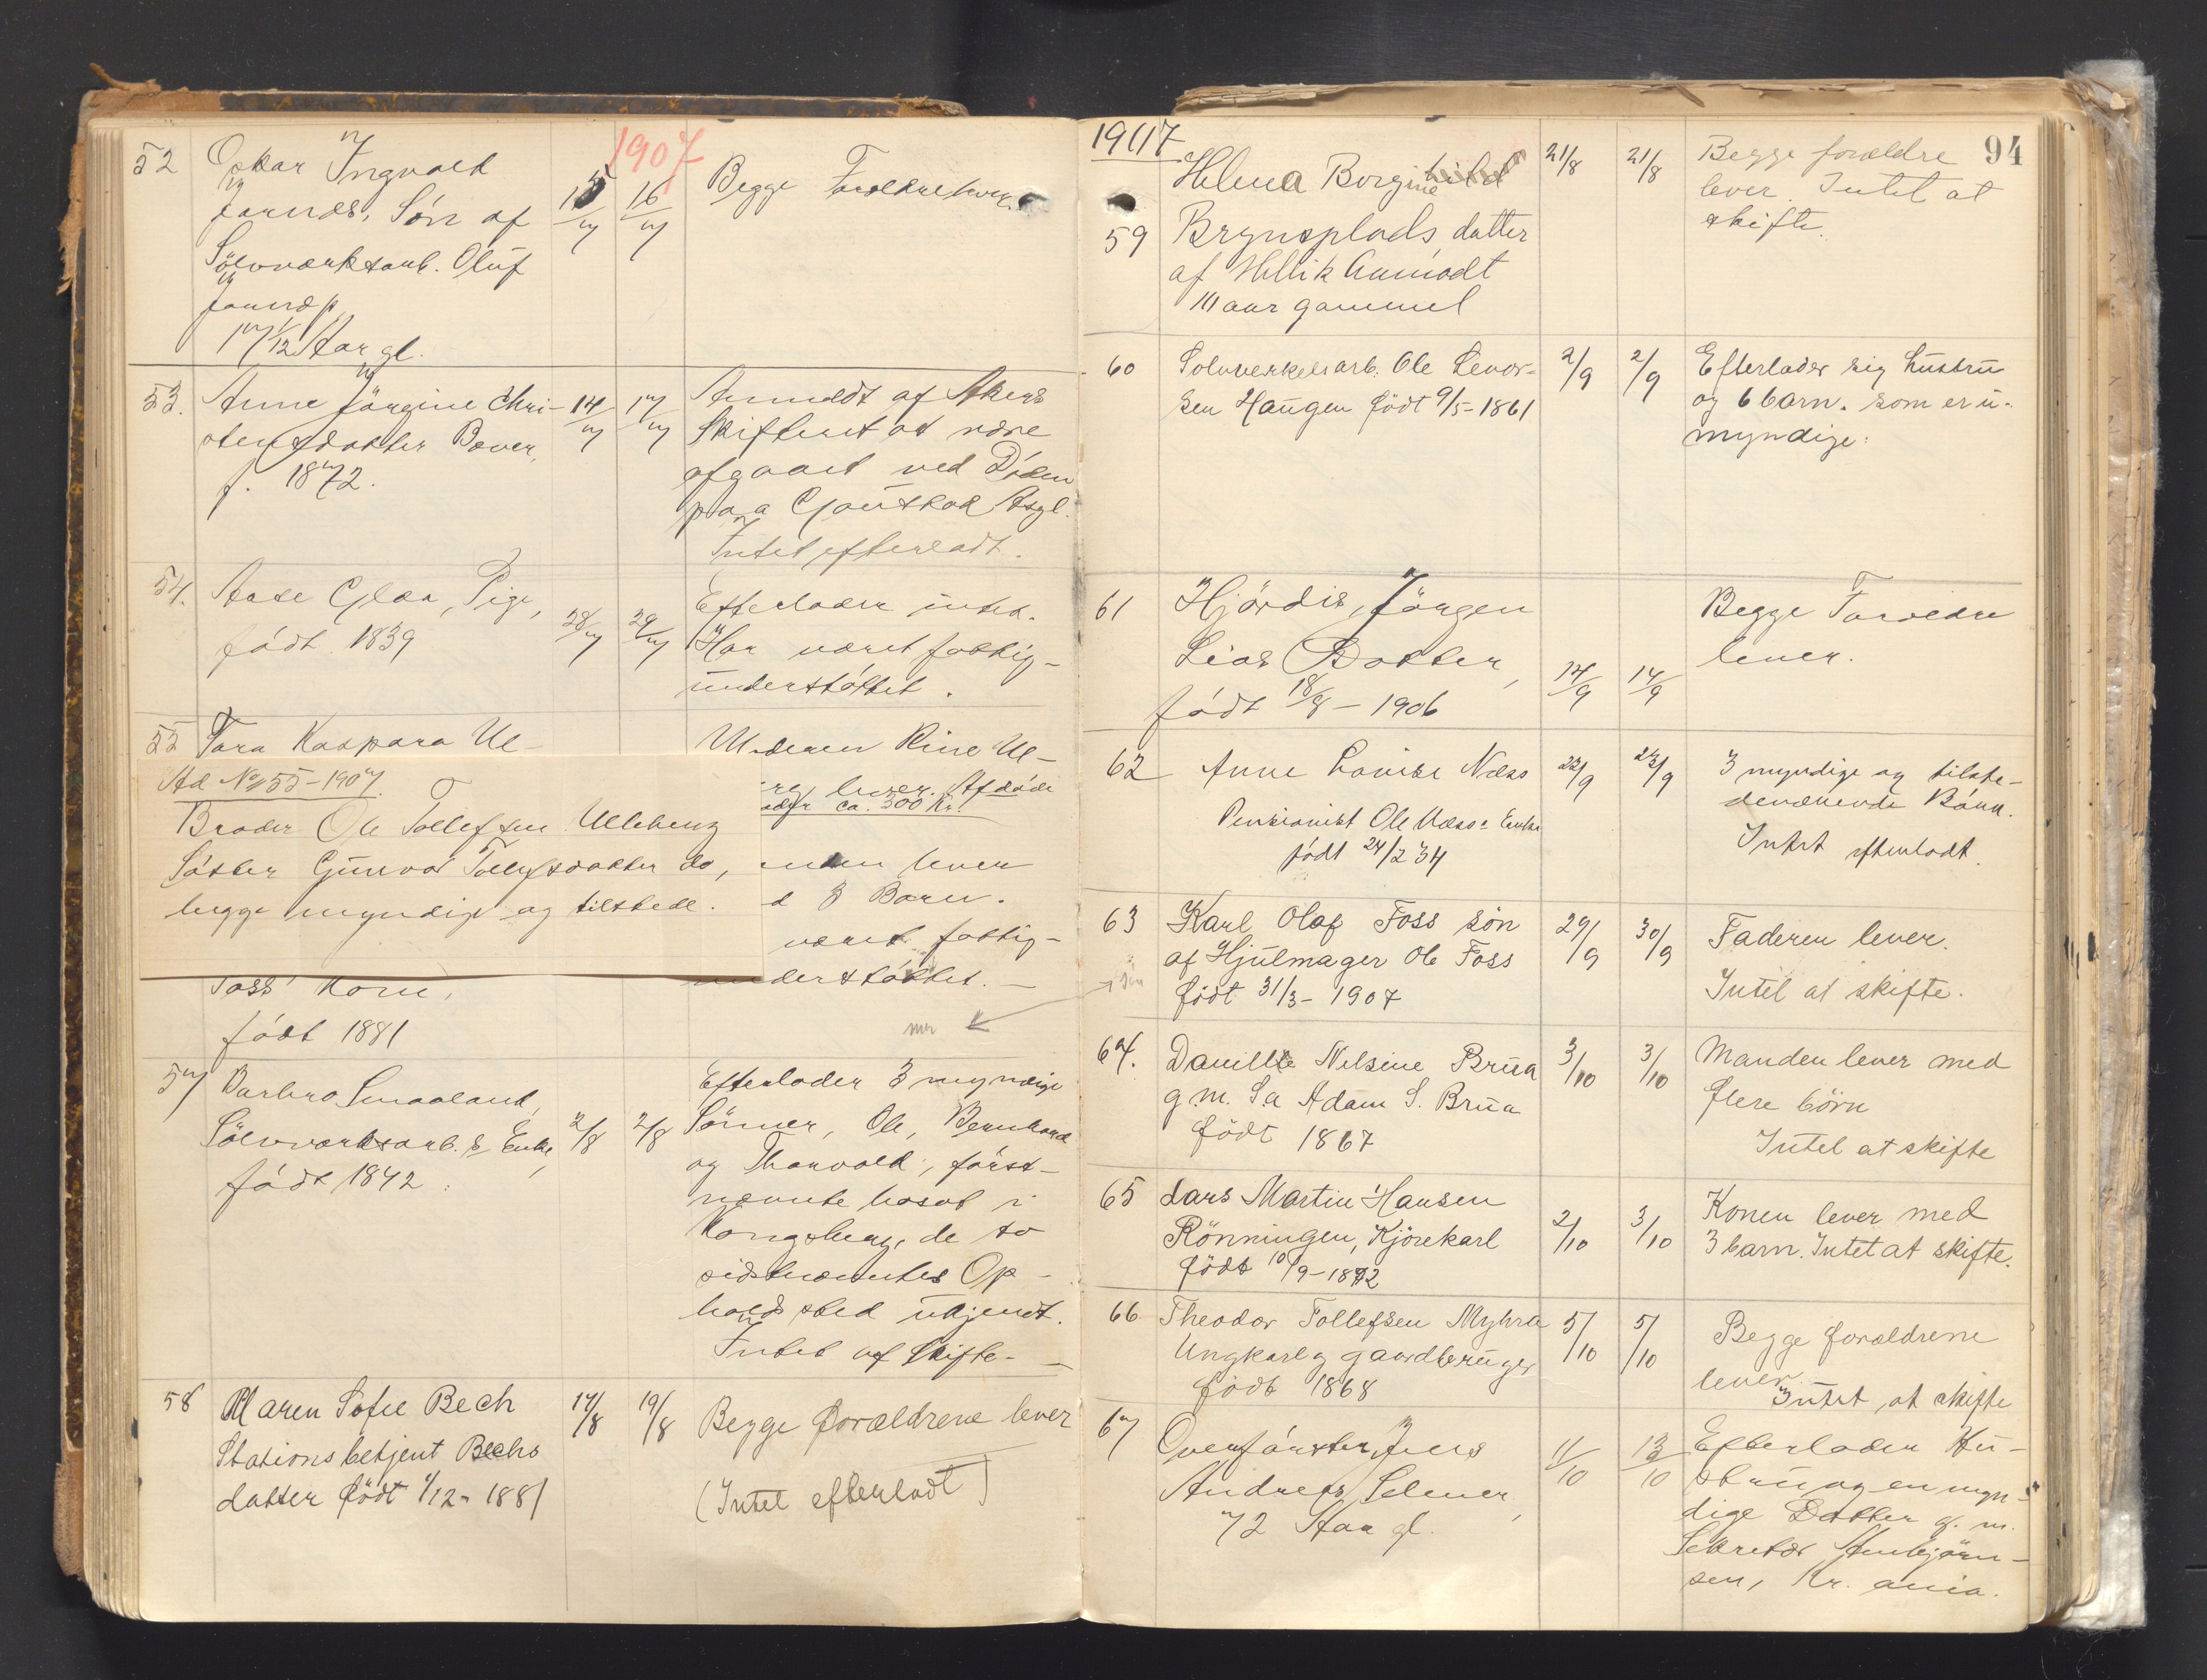 1907
52 Oskar Ingvald
Jarnæs, Søn af
Sølvværksarb. Oluf
Jarnæs,
1 7/12 Aar gl.
15/7 16/7
Begge Forældre lever.
53. Anne Jørgine Chri-
stensdatter Bover,
f. 1872.
14/7 17/7
Anmeldt af Akers
Skifteret at være
afgaaet ved Døden
paa Gaustad Asyl.
Intet efterladt.
54. Aase Glaa, Pige,
født 1839
28/7 29/7
Efterlader intet.
Har været fattig-
understøttet.
55 Tora Kaspara Ul-
Moderen Rine Ul-
lever. Afdøde
ca. 300 Kr.
Ad No 55-1907.
Broder Ole Tollefsen Ulleberg
Søster Gunvor Tollefsdatter do,
begge myndige og tilstede.
lever
3 Barn.
været fattig-
understøttet.
Foss' Kone,
født 1881
mer
57 Barbro Smaaland,
Sølvværksarb.s Enke,
født 1842
2/8 2/8
Efterlader 3 myndige
Sønner, Ole, Bernhard
og Thorvald, først-
nævnte bosat i
Kongsberg, de to
sidstnævntes Op-
holdssted ukjendt.
Intet at skifte.
58 Maren Sofie Bech
Stationsbetjent Bechs
datter født 1/12-1881
17/8 19/8
Begge forældrene lever
(Intet efterladt)
94
1907
59 Helena Borgine
Brynsplads, datter
af Hellik Aamodt
11 aar gammel
21/8 21/8
Begge forældre
lever. Intet at
skifte.
60 Solvverkesarb. Ole Levor-
sen Haugen født 9/5-1861
2/9 2/9
Efterlader sig hustru
og 6 barn. som er u-
myndige.
61 Hjørdis, Jørgen
Lias Datter,
født 18/8-1906
14/9 14/9
Begge Forældre
lever.
62 Anne Lovise Næss
Pensionist Ole Næss's Enke
født 24/2 34
22/9 23/9
3 myndige og tilste-
deværende Børn.
Intet efterladt.
63 Karl Olaf Foss søn
af Hjulmager Ole Foss
født 31/3-1907
29/9 30/9
Faderen lever.
Intet at skifte.
64. Danille Nilsine Brua
g.m. Sa Adam S. Brua
født 1867
3/10 3/10
Manden lever med
flere börn
Intet at skifte
65 Lars Martin Hansen
Rönningen, Kjörekarl
født 10/9-1872
2/10 3/10
Konen lever med
3 barn. Intet at skifte.
66 Theodor Tollefsen Myhra
Ungkarl og gaardbruger
født 1868
5/10 5/10
Begge forældrene
lever
Intet at skifte
67 Overførster Jens
Andreas Selmer,
72 Aar gl.
11/10 13/10
Efterlader Hu-
stru og en myn-
dige Datter g. m.
Sekretær Asmbjørn-
sen, Kr.ania.